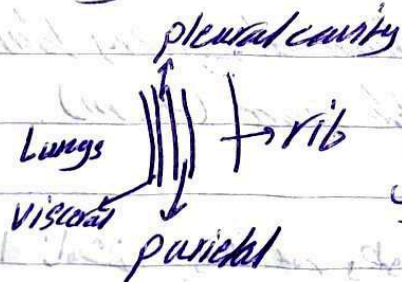 pleural cavity
Lungs
→ rib
visceral
parietal